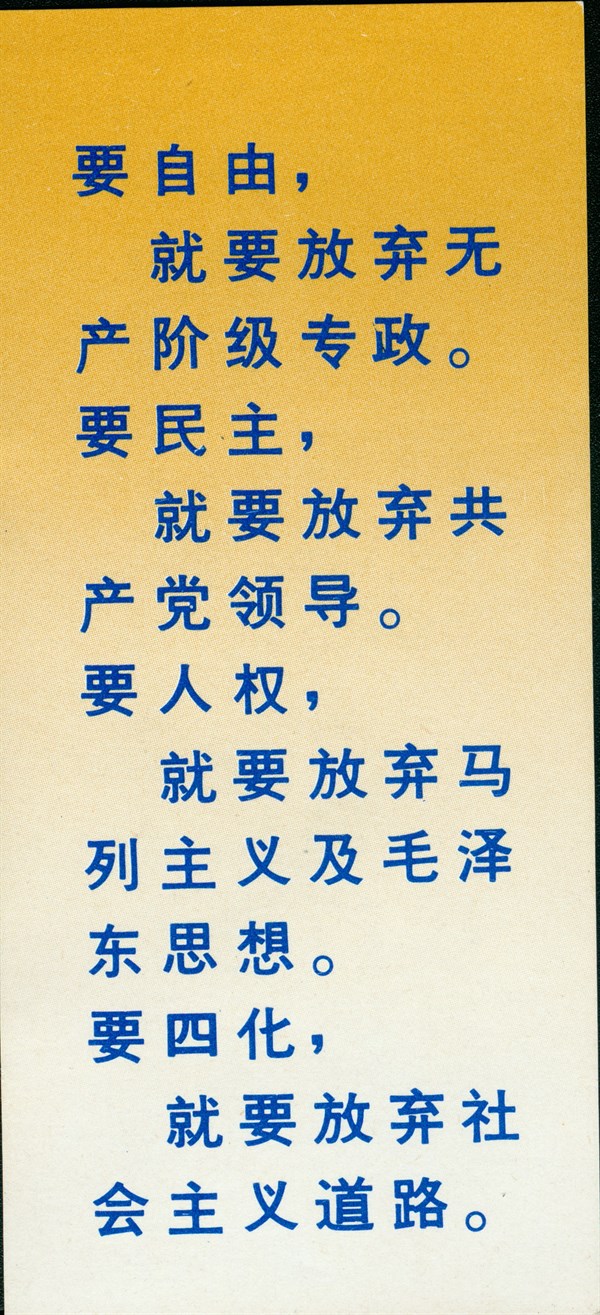 要自由，
就要放弃无
产阶级专政。
要民主，
就要放弃共
产党领导。
要人权，
就要放弃马
列主义及毛泽
东思想。
要四化，
就要放弃社
会主义道路。